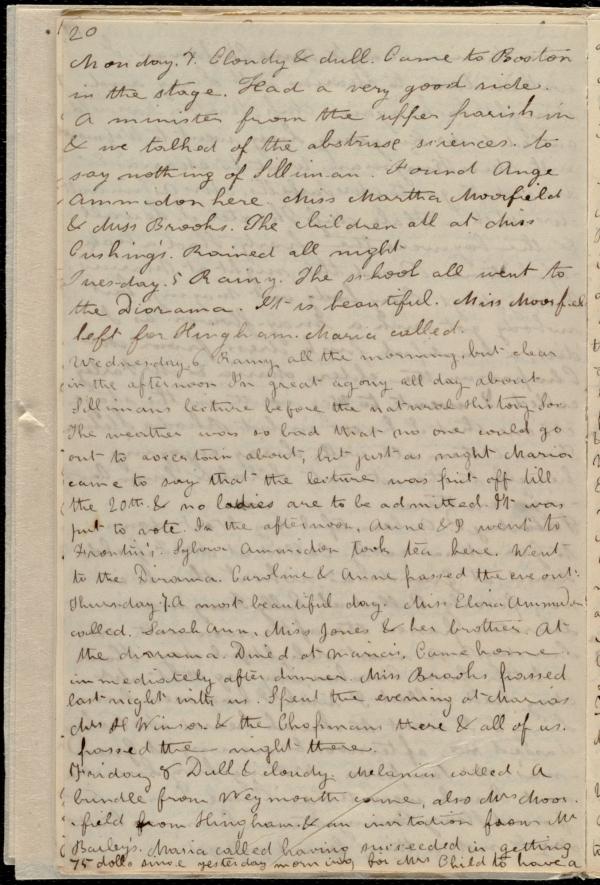 20
Monday. 4. Cloudy & dull. Came to Boston
in the stage. Had a very good ride.
A minister from the upper parish in
& we talked of the abstruse sciences. to
say nothing of Silliman. Found Ange
Ammidon here Miss Martha Moorfield
& Miss Brooks. The children all at Miss
Cushing's. Rained all night
Tuesday. 5 Rainy. The school all went to
the Diorama. It is beautiful. Miss Moorfiel
left for Hingham. Maria called.
Wednesday 6 Rainy all the morning, but clear
in the afternoon In great agony all day about
Sillimans lecture before the natural History Soc
The weather was so bad that no one could go
out to ascertain about, but just as night Maria
came to say that the lecture was put off till
the 20th. & no ladies are to be admitted. It was
put to vote. In the afternoon, Anne & I went to
Frontin's. Sylvia Ammidon took tea here. Went
to the Dirama. Caroline & Anne passed the eve out.
Thursday 7. A most beautiful day. Miss Eliza Ammidon
called. Sarah Ann, Miss Jones & her brother. At
the diorama. Dined at Maria's. Came home
immediately after dinner. Miss Brooks passed
last night with us. Spent the evening at Marias
Mrs H Winsor. & the Chapmans there & all of us.
passed the night there.
Friday 8 Dull & cloudy. Melania called. A
bundle from Weymouth came, also Mrs Moor-
-field from Hingham. & an invitation from Mr
Barleys. Maria called having succeeded in getting
75 dolls since yesterday morning for Mrs Child to have a